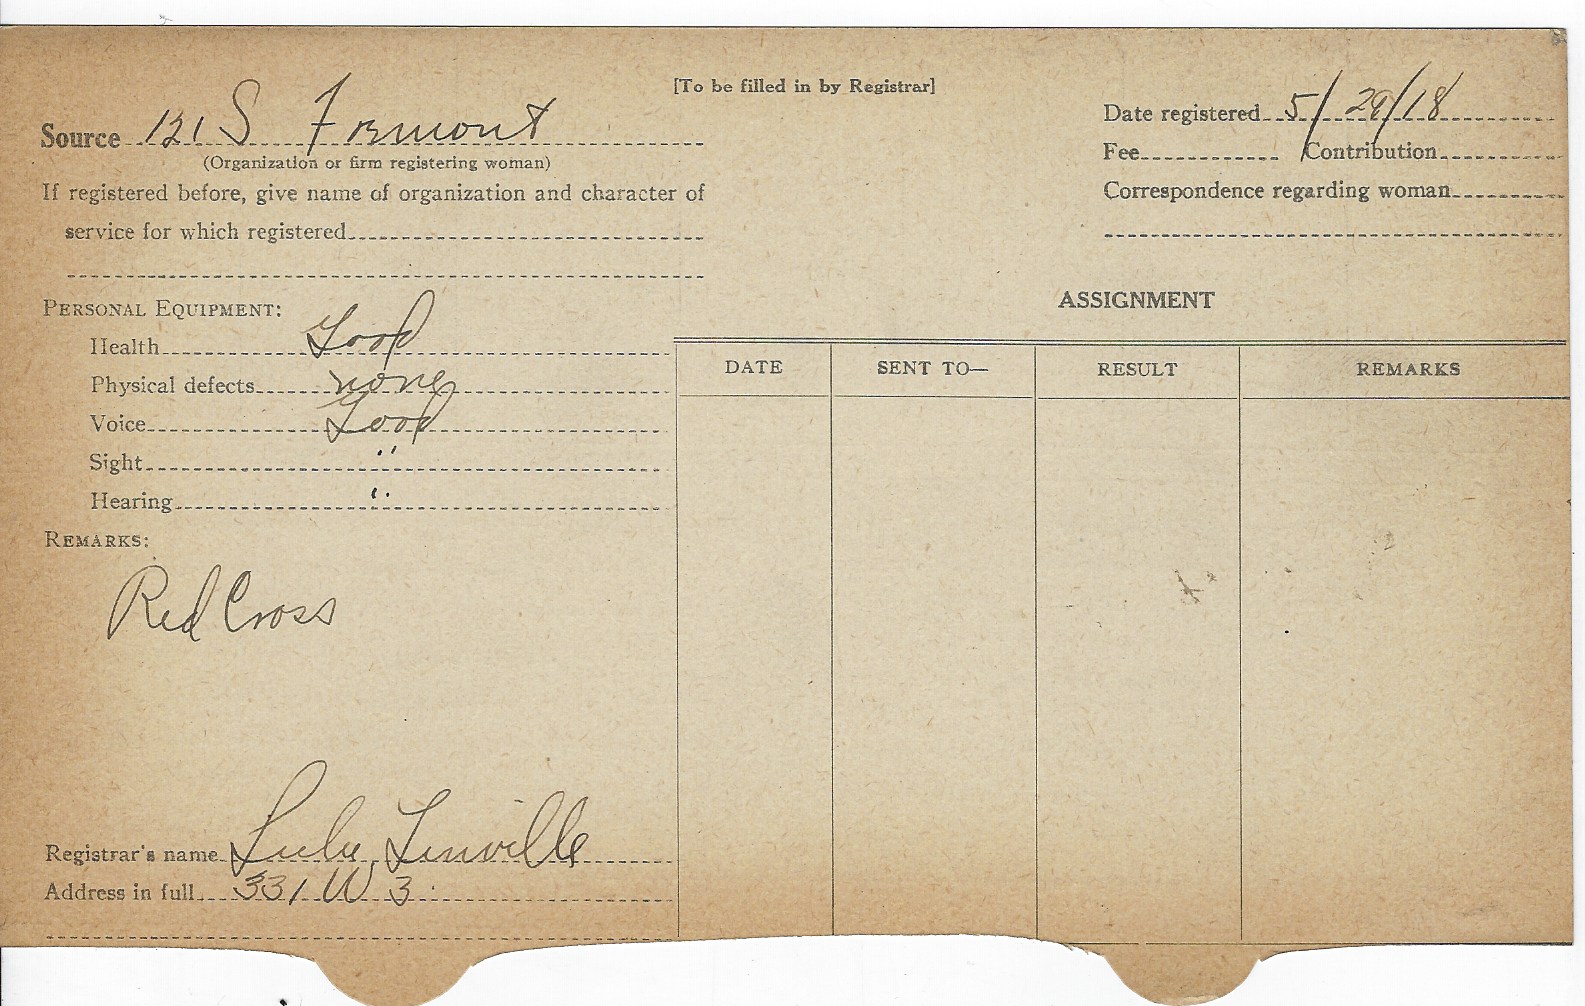 [To be filled in by Registrar]
Source 121 S Fremont
(Organization or firm registering woman)
If registered before, give name of organization and character of
service for which registered
Date registered 5/29/18
Fee Contribution
Correspondence regarding woman
PERSONAL EQUIPMENT:
Health Good
Physical defects none
Voice Good
Sight "
Hearing "
REMARKS:
Red Cross
Registrar's name Lulu Linville
Address in full 331 W 3
ASSIGNMENT
DATE SENT TO— RESULT REMARKS